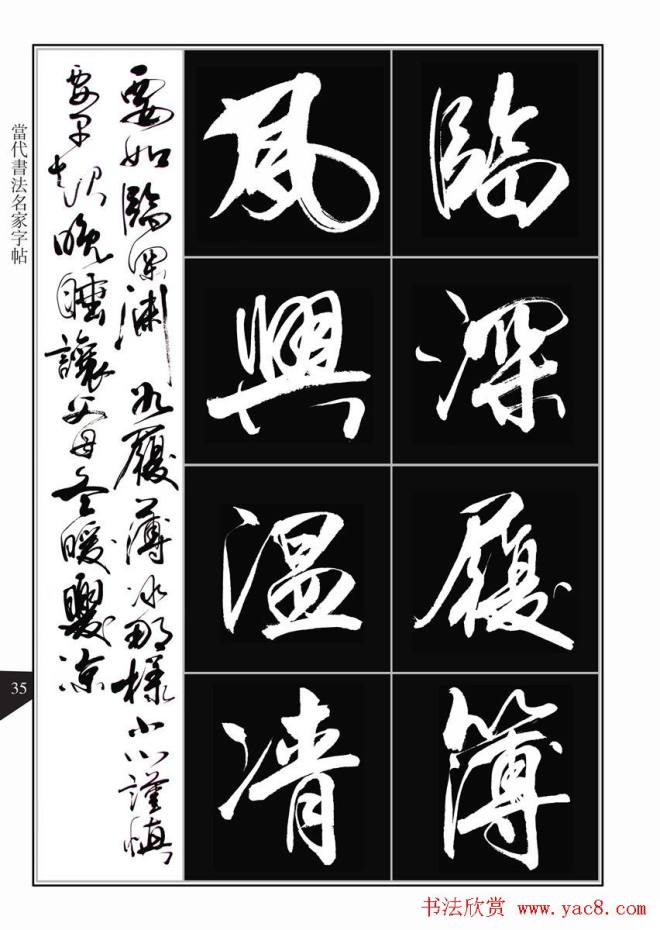 臨深履簿
夙興温凊
要如臨深渊如履薄冰那樣小心謹慎
要早起晚睡讓父母冬暖夏凉
當代書法名家字帖
35
书法欣赏 www.yac8.com